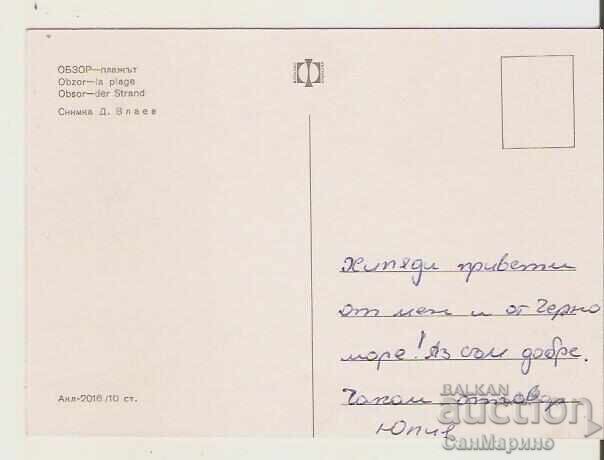 ОБЗОР—плажът
Obzor—la plage
Obsor—der Strand
Снимка Д. Влаев
Хиляди привети
от мен и от Черно
море! Аз съм добре.
Чакам отговор
BALKAN
auction
СанМарино
Акл-2016/10 ст.